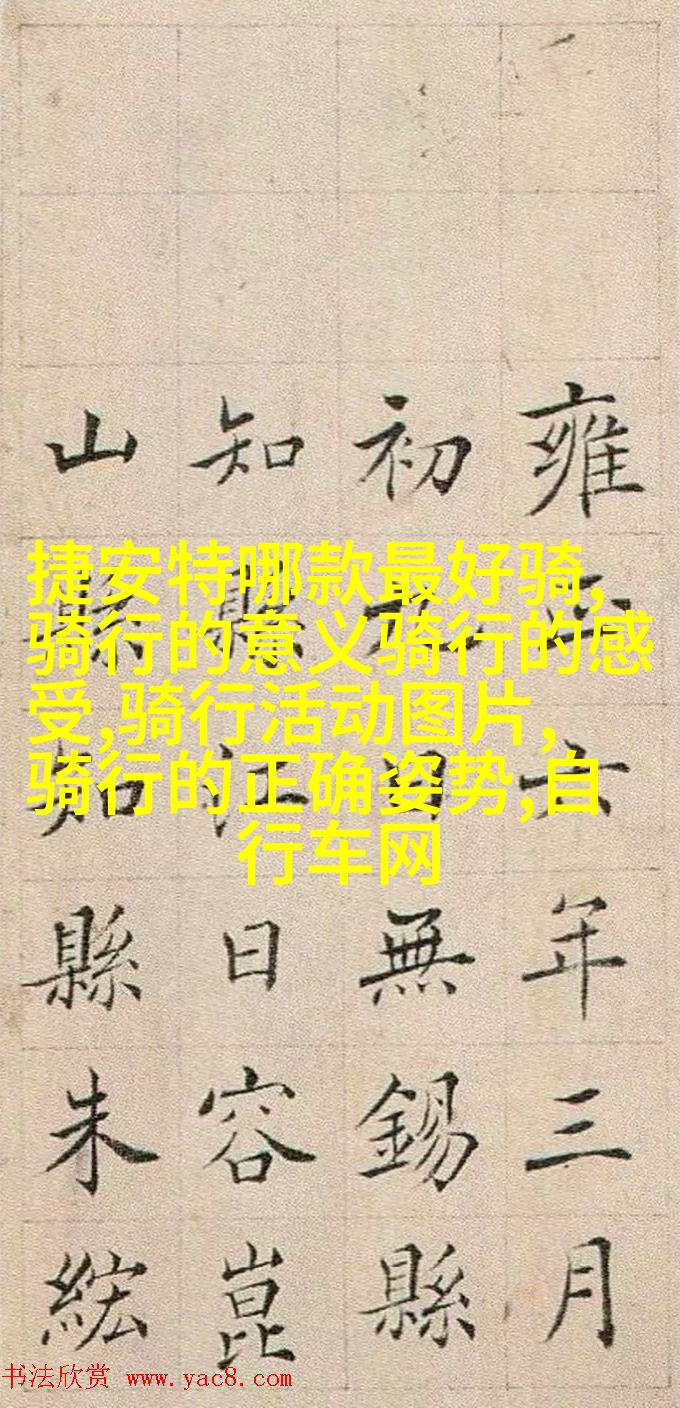 雍正六年三月
初九日無錫縣
知縣江日容崑
山縣知縣朱綋
捷安特哪款最好骑,
骑行的意义骑行的感
受,骑行活动图片,
骑行的正确姿势,自
行车网
书法欣赏 www.yac8.com